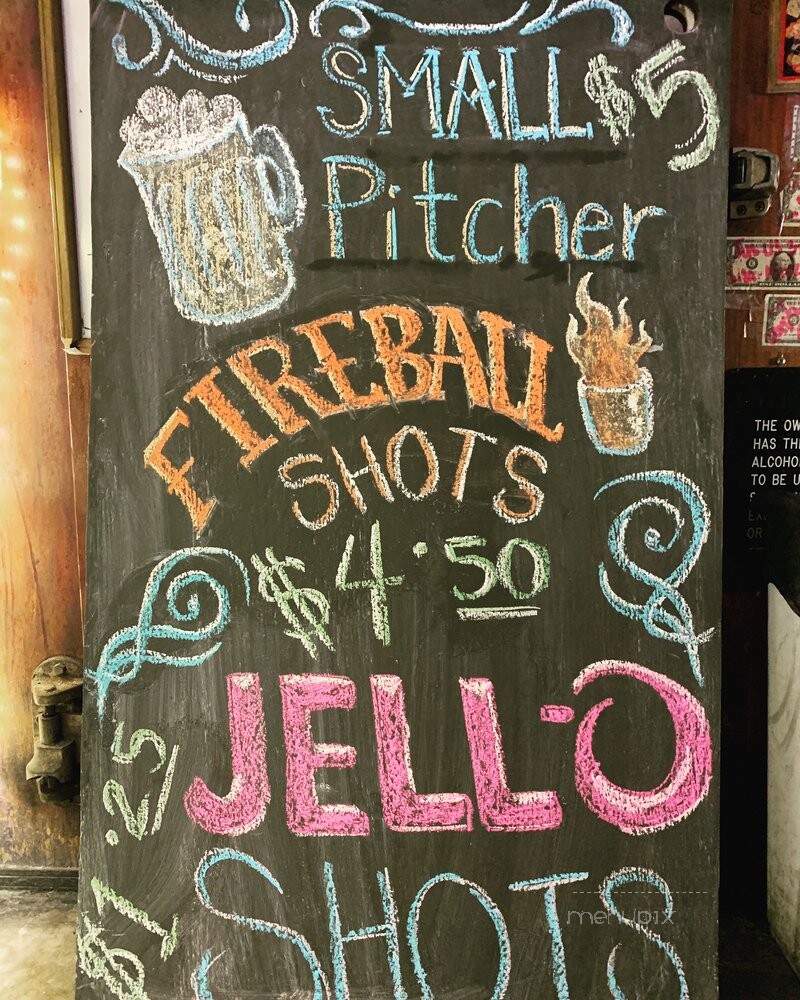 SMALL $5
Pitcher
FIREBALL
SHOTS
$4.50
JELL-O
$1.25
SHOTS
THE OW
HAS TH
ALCOHO
TO BE U
OR
menupix